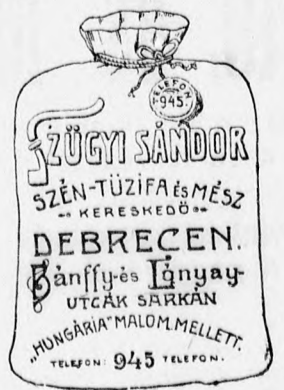 TELEFON
945.
SZÜGYI SÁNDOR
SZÉN-TÜZIFA és MÉSZ
KERESKEDŐ
DEBRECEN.
Bánffy- és Lónyay-
UTCÁK SARKÁN
„HUNGÁRIA” MALOM MELLETT.
TELEFON: 945 TELEFON.